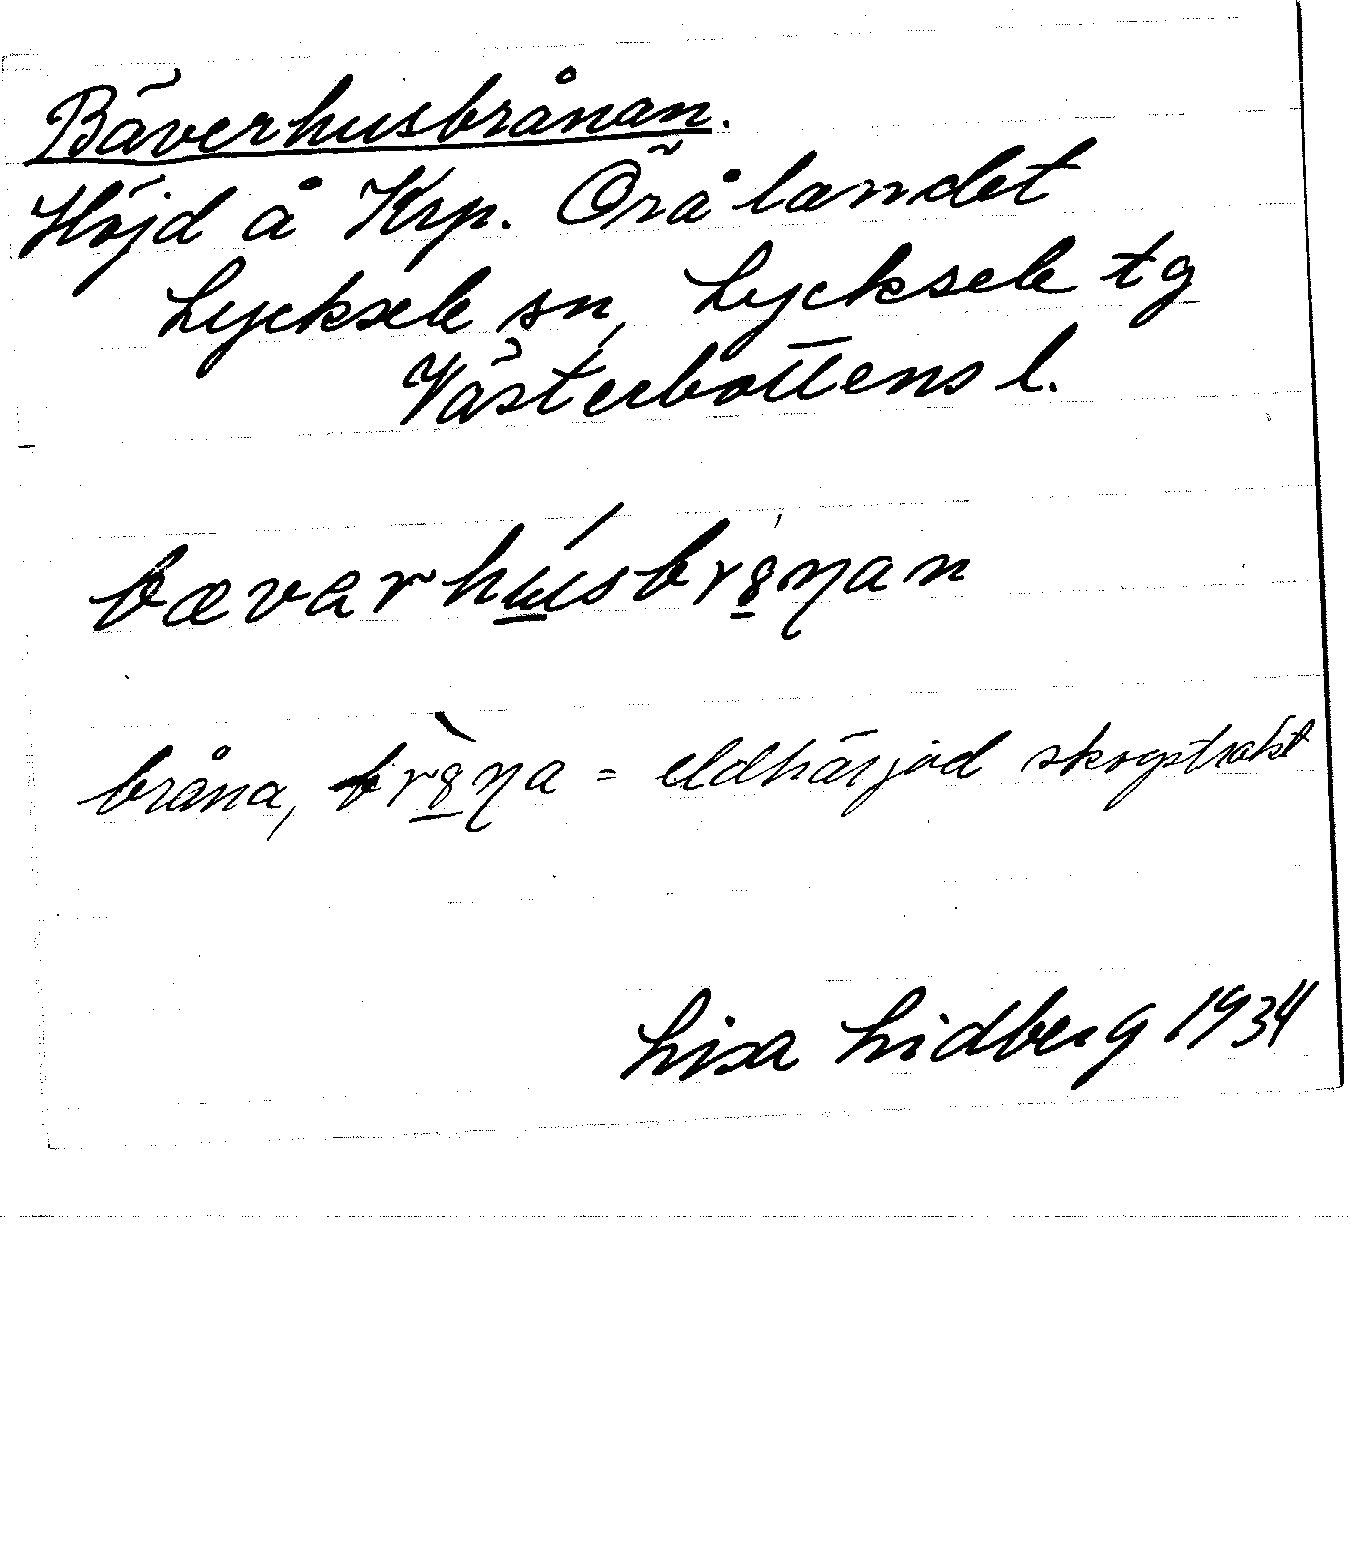 Bäverhusbrånan.
Höjd å Krp. Örålandet
Lycksele sn, Lycksele tg
Västerbottens l.
bævarhú̲sbrȣ̲ŋan
bråna, brȣ̲̀ŋa = eldhärjad skogstrakt
Lisa Lidberg 1934